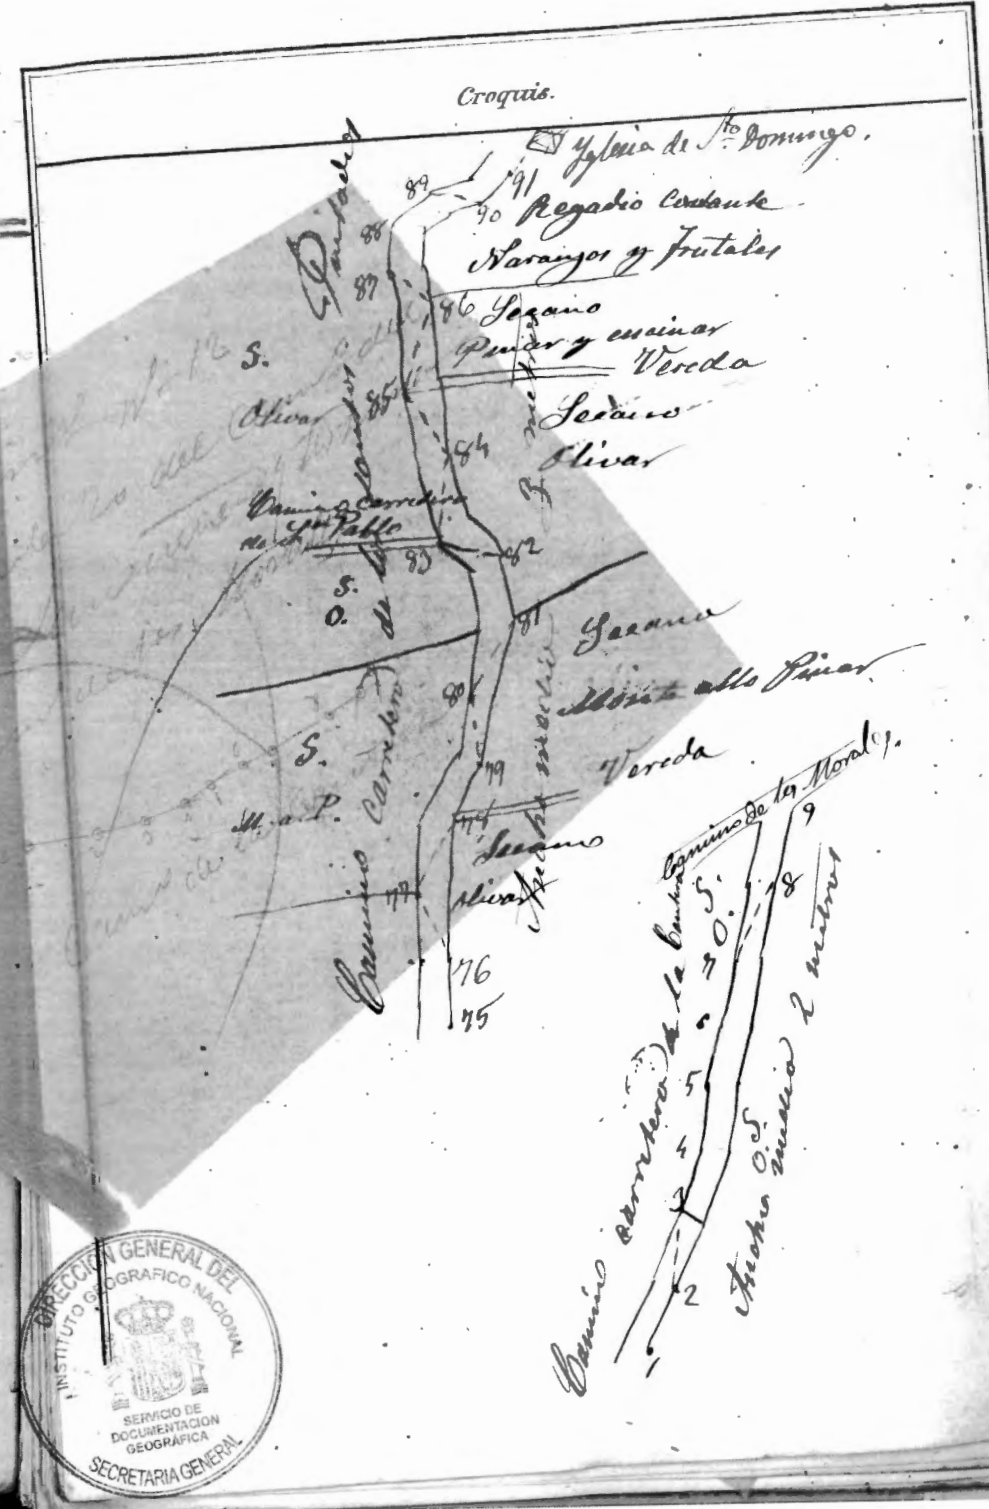 Croquis.
Yglesia de Sto Domingo.
89
91
90 Regadio Constante
88
Naranjos y frutales
87
86 Secano
Pinar y encinar
S.
Vereda
85
Olivar
Secano
84
Olivar
Camino carretero
de Sn Pablo
83
82
S.
O.
81
Secano
80
Monte alto Pinar
S.
79
Vereda
M. a. P.
78
Secano
77
Olivar
76
75
Camino carretero de los
Ancho medio 3 metros
Camino de los Morales.
9
8
S.
O.
7
6
5
3
2
1
S.
O.
Camino carretero de la
Ancho medio 2 metros
DIRECCIÓN GENERAL DEL
INSTITUTO GEOGRAFICO NACIONAL
SERVICIO DE
DOCUMENTACION
GEOGRÁFICA
SECRETARIA GENERAL